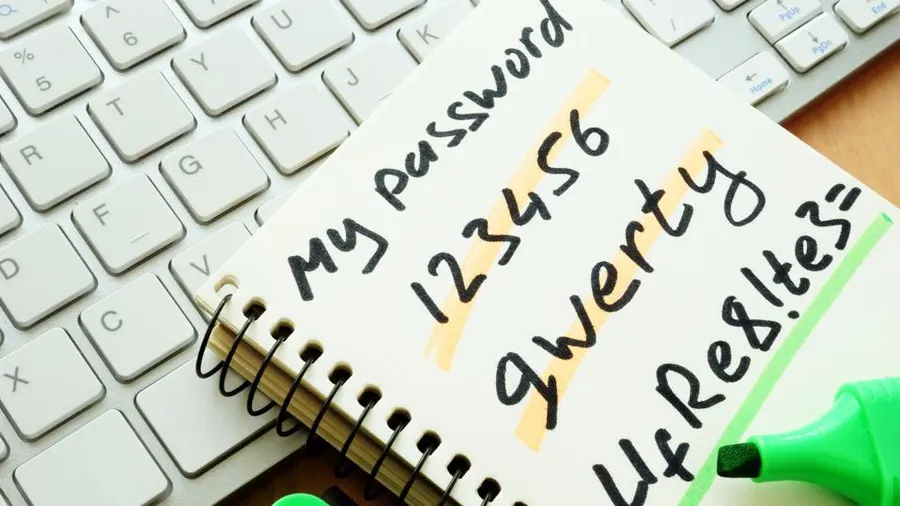 My password
123456
qwerty
UfRe8!te3=
%
5
^
6
Y
U
K
R
T
G
H
J
D
F
V
X
C
?
/
PgUp
PgDn
Home
End